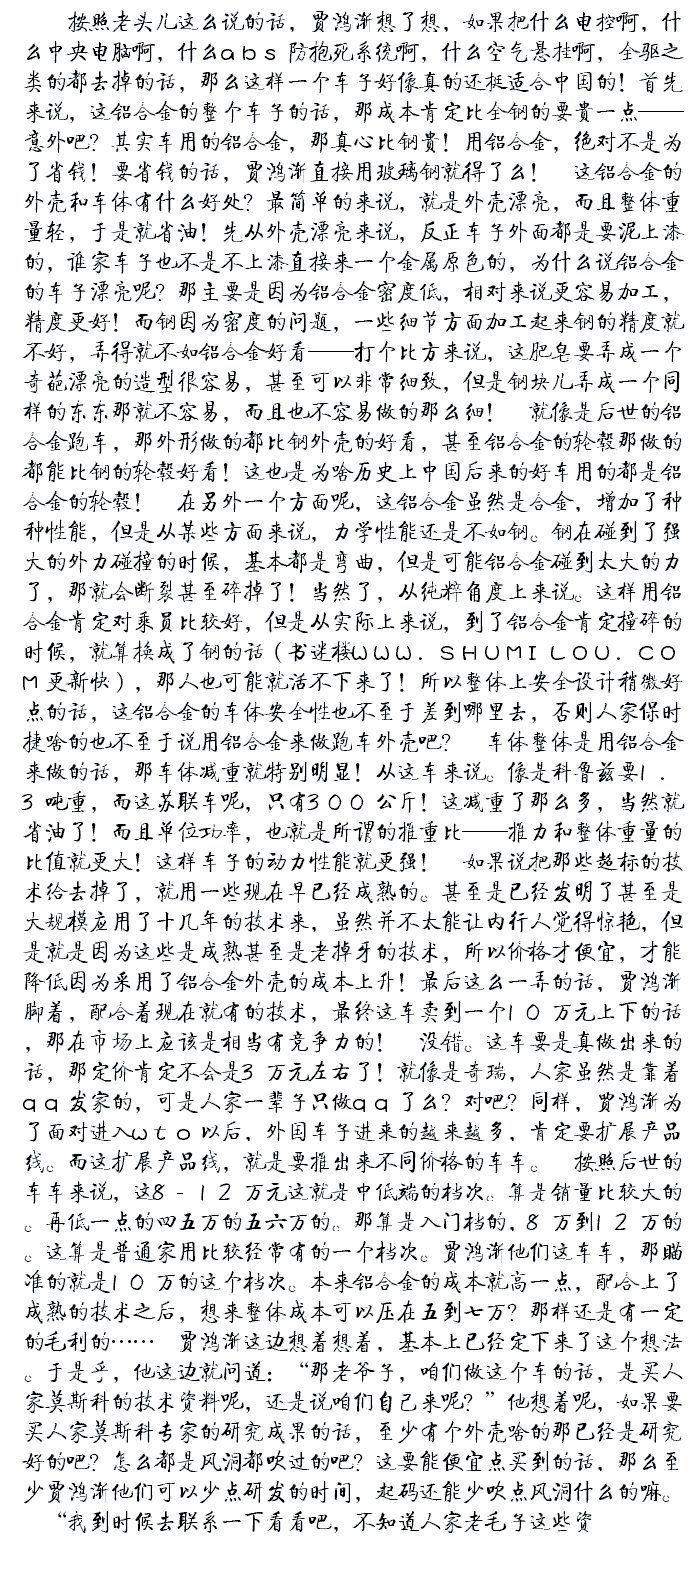 按照老头儿这么说的话，贾鸿渐想了想，如果把什么电控啊，什
么中央电脑啊，什么abs防抱死系统啊，什么空气悬挂啊，全驱之
类的都去掉的话，那么这样一个车子好像真的还挺适合中国的！首先
来说，这铝合金的整个车子的话，那成本肯定比全钢的要贵一点——
意外吧？其实车用的铝合金，那真心比钢贵！用铝合金，绝对不是为
了省钱！要省钱的话，贾鸿渐直接用玻璃钢就得了么！　这铝合金的
外壳和车体有什么好处？最简单的来说，就是外壳漂亮，而且整体重
量轻，于是就省油！先从外壳漂亮来说，反正车子外面都是要泥上漆
的，谁家车子也不是不上漆直接来一个金属原色的，为什么说铝合金
的车子漂亮呢？那主要是因为铝合金密度低，相对来说更容易加工，
精度更好！而钢因为密度的问题，一些细节方面加工起来钢的精度就
不好，弄得就不如铝合金好看——打个比方来说，这肥皂要弄成一个
奇葩漂亮的造型很容易，甚至可以非常细致，但是钢块儿弄成一个同
样的东东那就不容易，而且也不容易做的那么细！　就像是后世的铝
合金跑车，那外形做的都比钢外壳的好看，甚至铝合金的轮毂那做的
都能比钢的轮毂好看！这也是为啥历史上中国后来的好车用的都是铝
合金的轮毂！　在另外一个方面呢，这铝合金虽然是合金，增加了种
种性能，但是从某些方面来说，力学性能还是不如钢。钢在碰到了强
大的外力碰撞的时候，基本都是弯曲，但是可能铝合金碰到太大的力
了，那就会断裂甚至碎掉了！当然了，从纯粹角度上来说。这样用铝
合金肯定对乘员比较好，但是从实际上来说，到了铝合金肯定撞碎的
时候，就算换成了钢的话（书迷楼WWW．SHUMILOU．CO
M更新快），那人也可能就活不下来了！所以整体上安全设计稍微好
点的话，这铝合金的车体安全性也不至于差到哪里去，否则人家保时
捷啥的也不至于说用铝合金来做跑车外壳吧？　车体整体是用铝合金
来做的话，那车体减重就特别明显！从这车来说。像是科鲁兹要1．
3吨重，而这苏联车呢，只有300公斤！这减重了那么多，当然就
省油了！而且单位功率，也就是所谓的推重比——推力和整体重量的
比值就更大！这样车子的动力性能就更强！　如果说把那些超标的技
术给去掉了，就用一些现在早已经成熟的。甚至是已经发明了甚至是
大规模应用了十几年的技术来，虽然并不太能让内行人觉得惊艳，但
是就是因为这些是成熟甚至是老掉牙的技术，所以价格才便宜，才能
降低因为采用了铝合金外壳的成本上升！最后这么一弄的话，贾鸿渐
脚着，配合着现在就有的技术，最终这车卖到一个10万元上下的话
，那在市场上应该是相当有竞争力的！　没错。这车要是真做出来的
话，那定价肯定不会是3万元左右了！就像是奇瑞，人家虽然是靠着
qq发家的，可是人家一辈子只做qq了么？对吧？同样，贾鸿渐为
了面对进入wto以后，外国车子进来的越来越多，肯定要扩展产品
线。而这扩展产品线，就是要推出来不同价格的车车。　按照后世的
车车来说，这8-12万元这就是中低端的档次。算是销量比较大的
。再低一点的四五万的五六万的。那算是入门档的，8万到12万的
。这算是普通家用比较经常有的一个档次。贾鸿渐他们这车车，那瞄
准的就是10万的这个档次。本来铝合金的成本就高一点，配合上了
成熟的技术之后，想来整体成本可以压在五到七万？那样还是有一定
的毛利的……　贾鸿渐这边想着想着，基本上已经定下来了这个想法
。于是乎，他这边就问道：“那老爷子，咱们做这个车的话，是买人
家莫斯科的技术资料呢，还是说咱们自己来呢？”他想着呢，如果要
买人家莫斯科专家的研究成果的话，至少有个外壳啥的那已经是研究
好的吧？怎么都是风洞都吹过的吧？这要能便宜点买到的话，那么至
少贾鸿渐他们可以少点研发的时间，起码还能少吹点风洞什么的嘛。
“我到时候去联系一下看看吧，不知道人家老毛子这些资